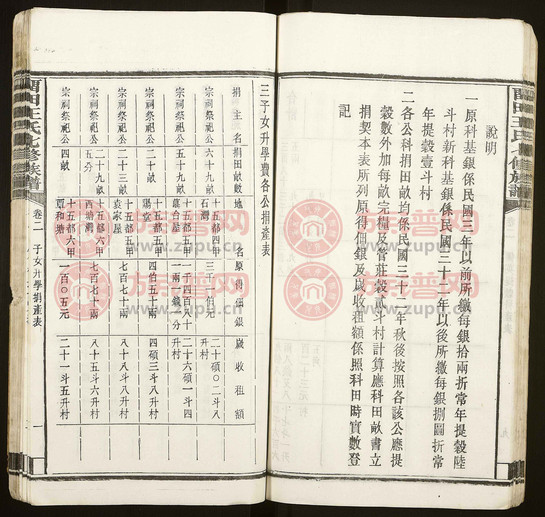 說明
一原科基銀係民國三年以前所繳每銀拾兩折常年提穀陸
斗村新科基銀係民國三十二年以後所繳每銀捌圓折常
年提穀壹斗村
二各公科捐田畝均係民國三十二年秋後按照各該公應提
穀數外加每畝完糧及管莊穀貳斗村計算應科田畝書立
捐契本表所列原得價銀及歲收租額係照科田時實數登
記
三子女升學費各公捐產表
捐主名 捐田畝數 地名 原得價銀 歲收租額
宗祠祭祀公 六十九畝 十五都四甲 石灣 三千伯元 二十碩〇二斗八升村
宗祠祭祀公 五十九畝 十五都五甲 一千四百八十一兩一錢一分 二十六碩一斗四升村
宗祠祭祀公 二十畝 十五都五甲 四百五十兩 四碩三斗八升村
宗祠祭祀公 二十三畝 十五都五甲 袁家屋 七百七十兩 八十八斗八升村
宗祠祭祀公 二十九畝五分 十五都六甲 西塘灣 七百七十兩 八十五斗六升村
宗祠祭祀公 四畝 十五都六甲 一百〇五元 二十一斗五升村
王氏七修族譜
卷二 子女升學捐產表 一
族谱网